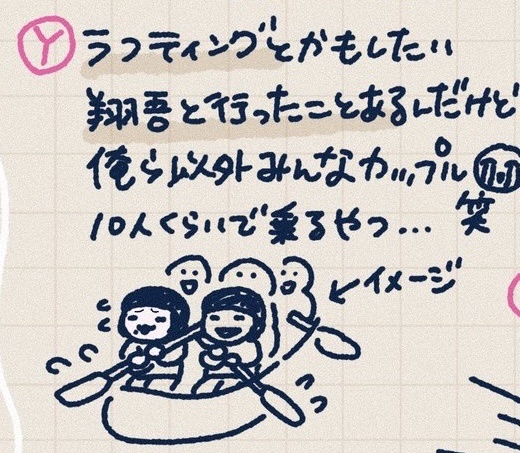 Y ラフティングとかもしたい
翔吾と行ったことあるんだけど
俺ら以外みんなカップル
10人くらいで乗るやつ… 笑
←イメージ